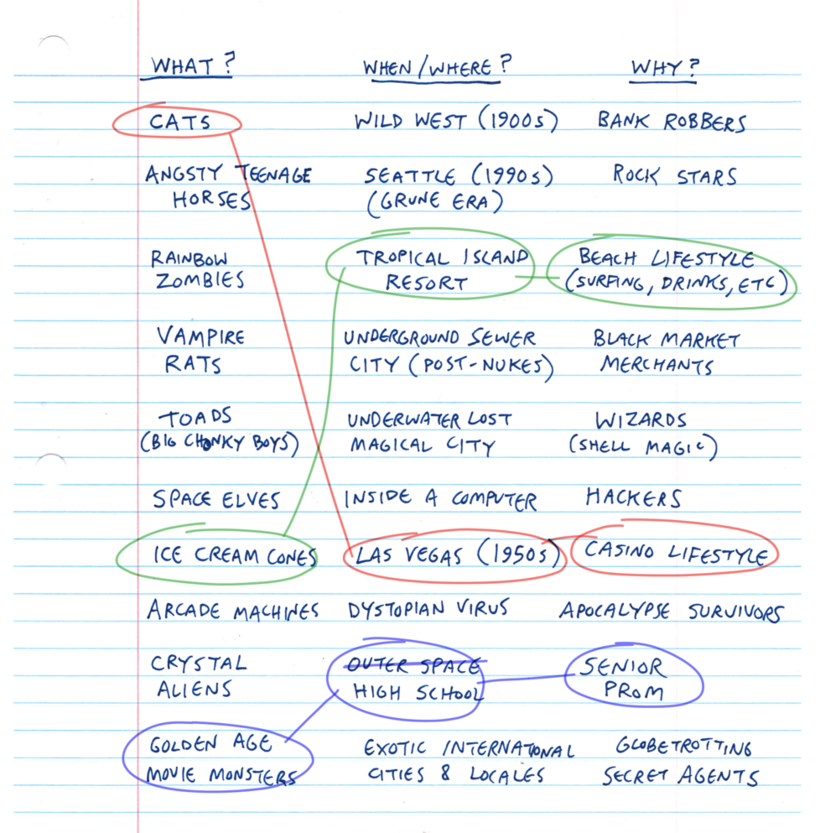 WHAT? WHEN/WHERE? WHY?
CATS WILD WEST (1900s) BANK ROBBERS
ANGSTY TEENAGE SEATTLE (1990s) ROCK STARS
HORSES (GRUNE ERA)
RAINBOW TROPICAL ISLAND BEACH LIFESTYLE
ZOMBIES RESORT (SURFING, DRINKS, ETC)
VAMPIRE UNDERGROUND SEWER BLACK MARKET
RATS CITY (POST-NUKES) MERCHANTS
TOADS UNDERWATER LOST WIZARDS
(BIG CHONKY BOYS) MAGICAL CITY (SHELL MAGIC)
SPACE ELVES INSIDE A COMPUTER HACKERS
ICE CREAM CONES LAS VEGAS (1950s) CASINO LIFESTYLE
ARCADE MACHINES DYSTOPIAN VIRUS APOCALYPSE SURVIVORS
CRYSTAL OUTER SPACE SENIOR
ALIENS HIGH SCHOOL PROM
GOLDEN AGE EXOTIC INTERNATIONAL GLOBETROTTING
MOVIE MONSTERS CITIES & LOCALES SECRET AGENTS